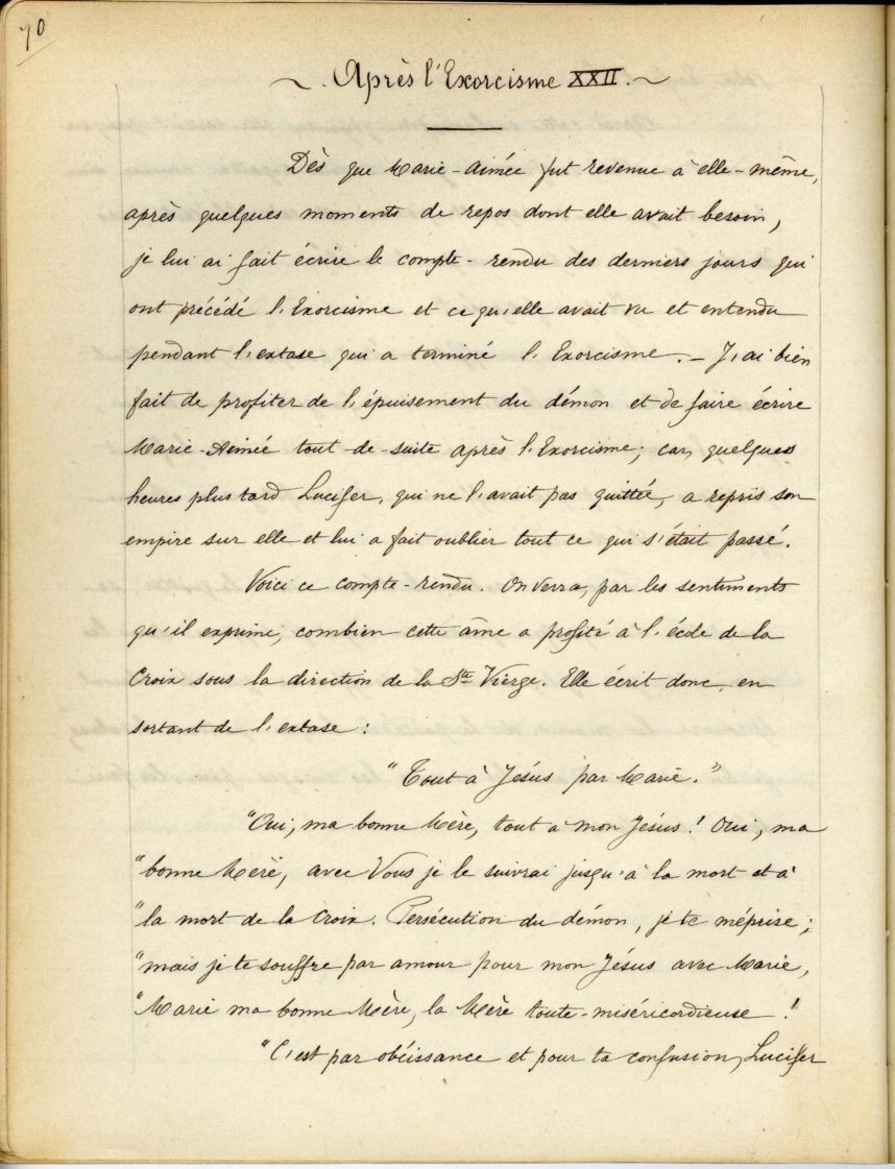 70
~. Après l'Exorcisme XXII. ~
Dès que Marie-Aimée fut revenue à elle-même,
après quelques moments de repos dont elle avait besoin,
je lui ai fait écrire le compte-rendu des derniers jours qui
ont précédé l'Exorcisme et ce qu'elle avait vu et entendu
pendant l'extase qui a terminé l'Exorcisme. – J'ai bien
fait de profiter de l'épuisement du démon et de faire écrire
Marie-Aimée tout-de-suite après l'Exorcisme; car, quelques
heures plus tard Lucifer, qui ne l'avait pas quittée, a repris son
empire sur elle et lui a fait oublier tout ce qui s'était passé.
Voici ce compte-rendu. On verra, par les sentiments
qu'il exprime, combien cette âme a profité à l'école de la
Croix sous la direction de la Ste Vierge. Elle écrit donc, en
sortant de l'extase :
"Tout à Jésus par Marie."
"Oui, ma bonne Mère, tout à mon Jésus! Oui, ma
"bonne Mère, avec Vous je le suivrai jusqu'à la mort et à
"la mort de la Croix. Persécution du démon, je te méprise;
"mais je te souffre par amour pour mon Jésus avec Marie,
"Marie ma bonne Mère, la Mère toute-miséricordieuse !
"C'est par obéissance et pour ta confusion, Lucifer